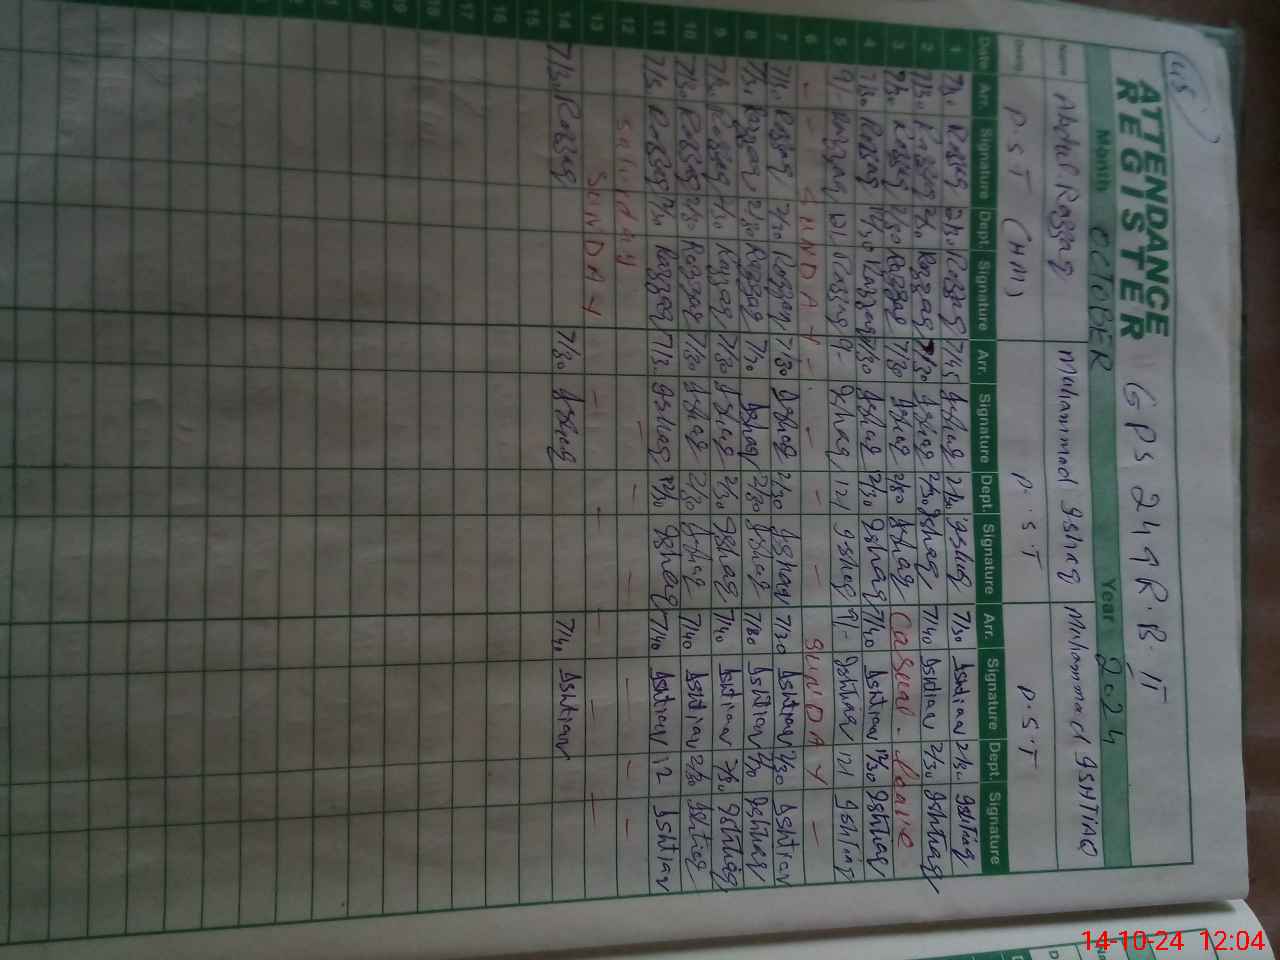 45
ATTENDANCE REGISTER GPS 249R.B. II
Month OCTOBER Year 2024
Name Abdul Razzaq Muhammad Ishaq Muhammad ISHTIAQ
P.S.T (HM) P.S.T P.S.T
Date Arr. Signature Dept. Signature Arr. Signature Dept. Signature Arr. Signature Dept. Signature
1 7/30 Razzaq 2/30 Razzaq 7/45 Ishaq 2/30 Ishaq 7/30 Ishtiaq 2/30 Ishtiaq
2 7/30 Razzaq 2/30 Razzaq 7/30 Ishaq 2/30 Ishaq 7/40 Ishtiaq 2/30 Ishtiaq
3 7/30 Razzaq 2/30 Razzaq 7/30 Ishaq 2/30 Ishaq Casual - leave
4 7/30 Razzaq 12/30 Razzaq 7/30 Ishaq 12/30 Ishaq 7/40 Ishtiaq 12/30 Ishtiaq
5 9/- Razzaq 12/ Razzaq 9- Ishaq 12/ Ishaq 9/- Ishtiaq 12/ Ishtiaq
6 - - SUNDAY - - - - SUNDAY -
7 7/30 Razzaq 2/30 Razzaq 7/30 Ishaq 2/30 Ishaq 7/30 Ishtiaq 2/30 Ishtiaq
8 7/30 Razzaq 2/30 Razzaq 7/30 Ishaq 2/30 Ishaq 7/30 Ishtiaq 2/30 Ishtiaq
9 7/30 Razzaq 2/30 Razzaq 7/30 Ishaq 2/30 Ishaq 7/40 Ishtiaq 2/30 Ishtiaq
10 7/30 Razzaq 2/30 Razzaq 7/30 Ishaq 2/30 Ishaq 7/40 Ishtiaq 2/30 Ishtiaq
11 7/30 Razzaq 12/30 Razzaq 7/30 Ishaq 12/30 Ishaq 7/40 Ishtiaq 12 Ishtiaq
12 Saturday - - - - - -
13 SUNDAY - - - - -
14 7/30 Razzaq 7/30 Ishaq 7/40 Ishtiaq
15
16
17
18
19
14-10-24 12:04